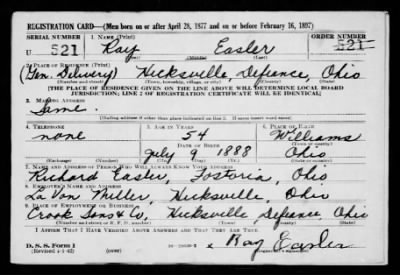 REGISTRATION CARD—(Men born on or after April 28, 1877 and on or before February 16, 1897)
SERIAL NUMBER 1. NAME (Print) ORDER NUMBER
U 521 Ray Easler 521
(First) (Middle) (Last)
2. PLACE OF RESIDENCE (Print)
(Gen. Delivery) Hicksville, Defiance, Ohio
(Number and street) (Town, township, village, or city) (County) (State)
[THE PLACE OF RESIDENCE GIVEN ON THE LINE ABOVE WILL DETERMINE LOCAL BOARD
JURISDICTION; LINE 2 OF REGISTRATION CERTIFICATE WILL BE IDENTICAL]
3. MAILING ADDRESS
Same
[Mailing address if other than place indicated on line 2. If same insert word same]
4. TELEPHONE 5. AGE IN YEARS 6. PLACE OF BIRTH
none 54 Williams
DATE OF BIRTH (Town or county)
July 9 1888 Ohio
(Exchange) (Number) (Mo.) (Day) (Yr.) (State or country)
7. NAME AND ADDRESS OF PERSON WHO WILL ALWAYS KNOW YOUR ADDRESS
Richard Easler, Fostoria, Ohio
8. EMPLOYER'S NAME AND ADDRESS
La Von Miller, Hicksville, Ohio
9. PLACE OF EMPLOYMENT OR BUSINESS
Crook Sons & Co, Hicksville Defiance, Ohio
(Number and street or R. F. D. number) (Town) (County) (State)
I AFFIRM THAT I HAVE VERIFIED ABOVE ANSWERS AND THAT THEY ARE TRUE.
D. S. S. Form 1
(Revised 4-1-42) x Ray Easler